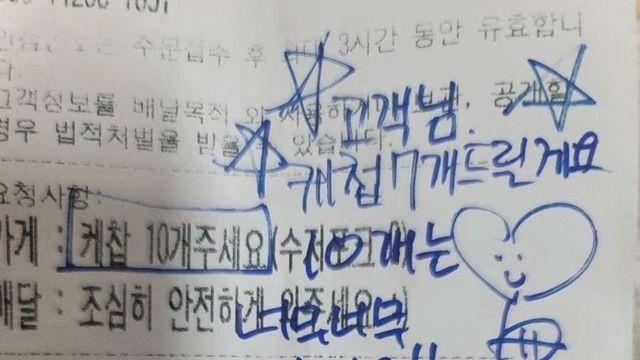 3시간 동안 유효합니
다.
고객정보를 배달목적 공개할
경우 법적처벌을 받을 수 있습니다.
고객님.
케첩 7개드릴게요
요청사항:
가게 : 케찹 10개주세요(수저포크
10개는
배달 : 조심히 안전하게 와주세요
너무너무